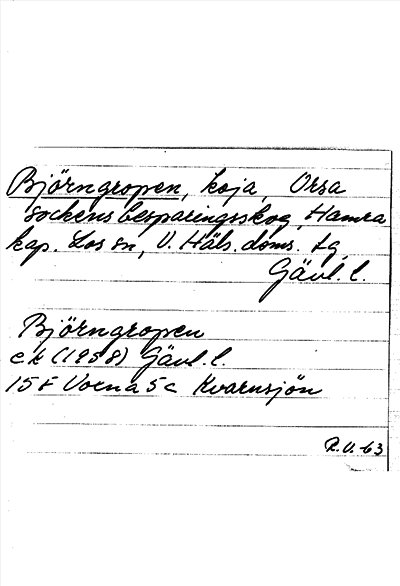 Björngropen, koja, Orsa
sockens besparingsskog, Hamra
kap. Los sn, V. Häls. doms. tg,
Gävl. l.
Björngropen
ek (1958) Gävl. l.
15 F Voxna 5 c Kvarnsjön
R.V. -63